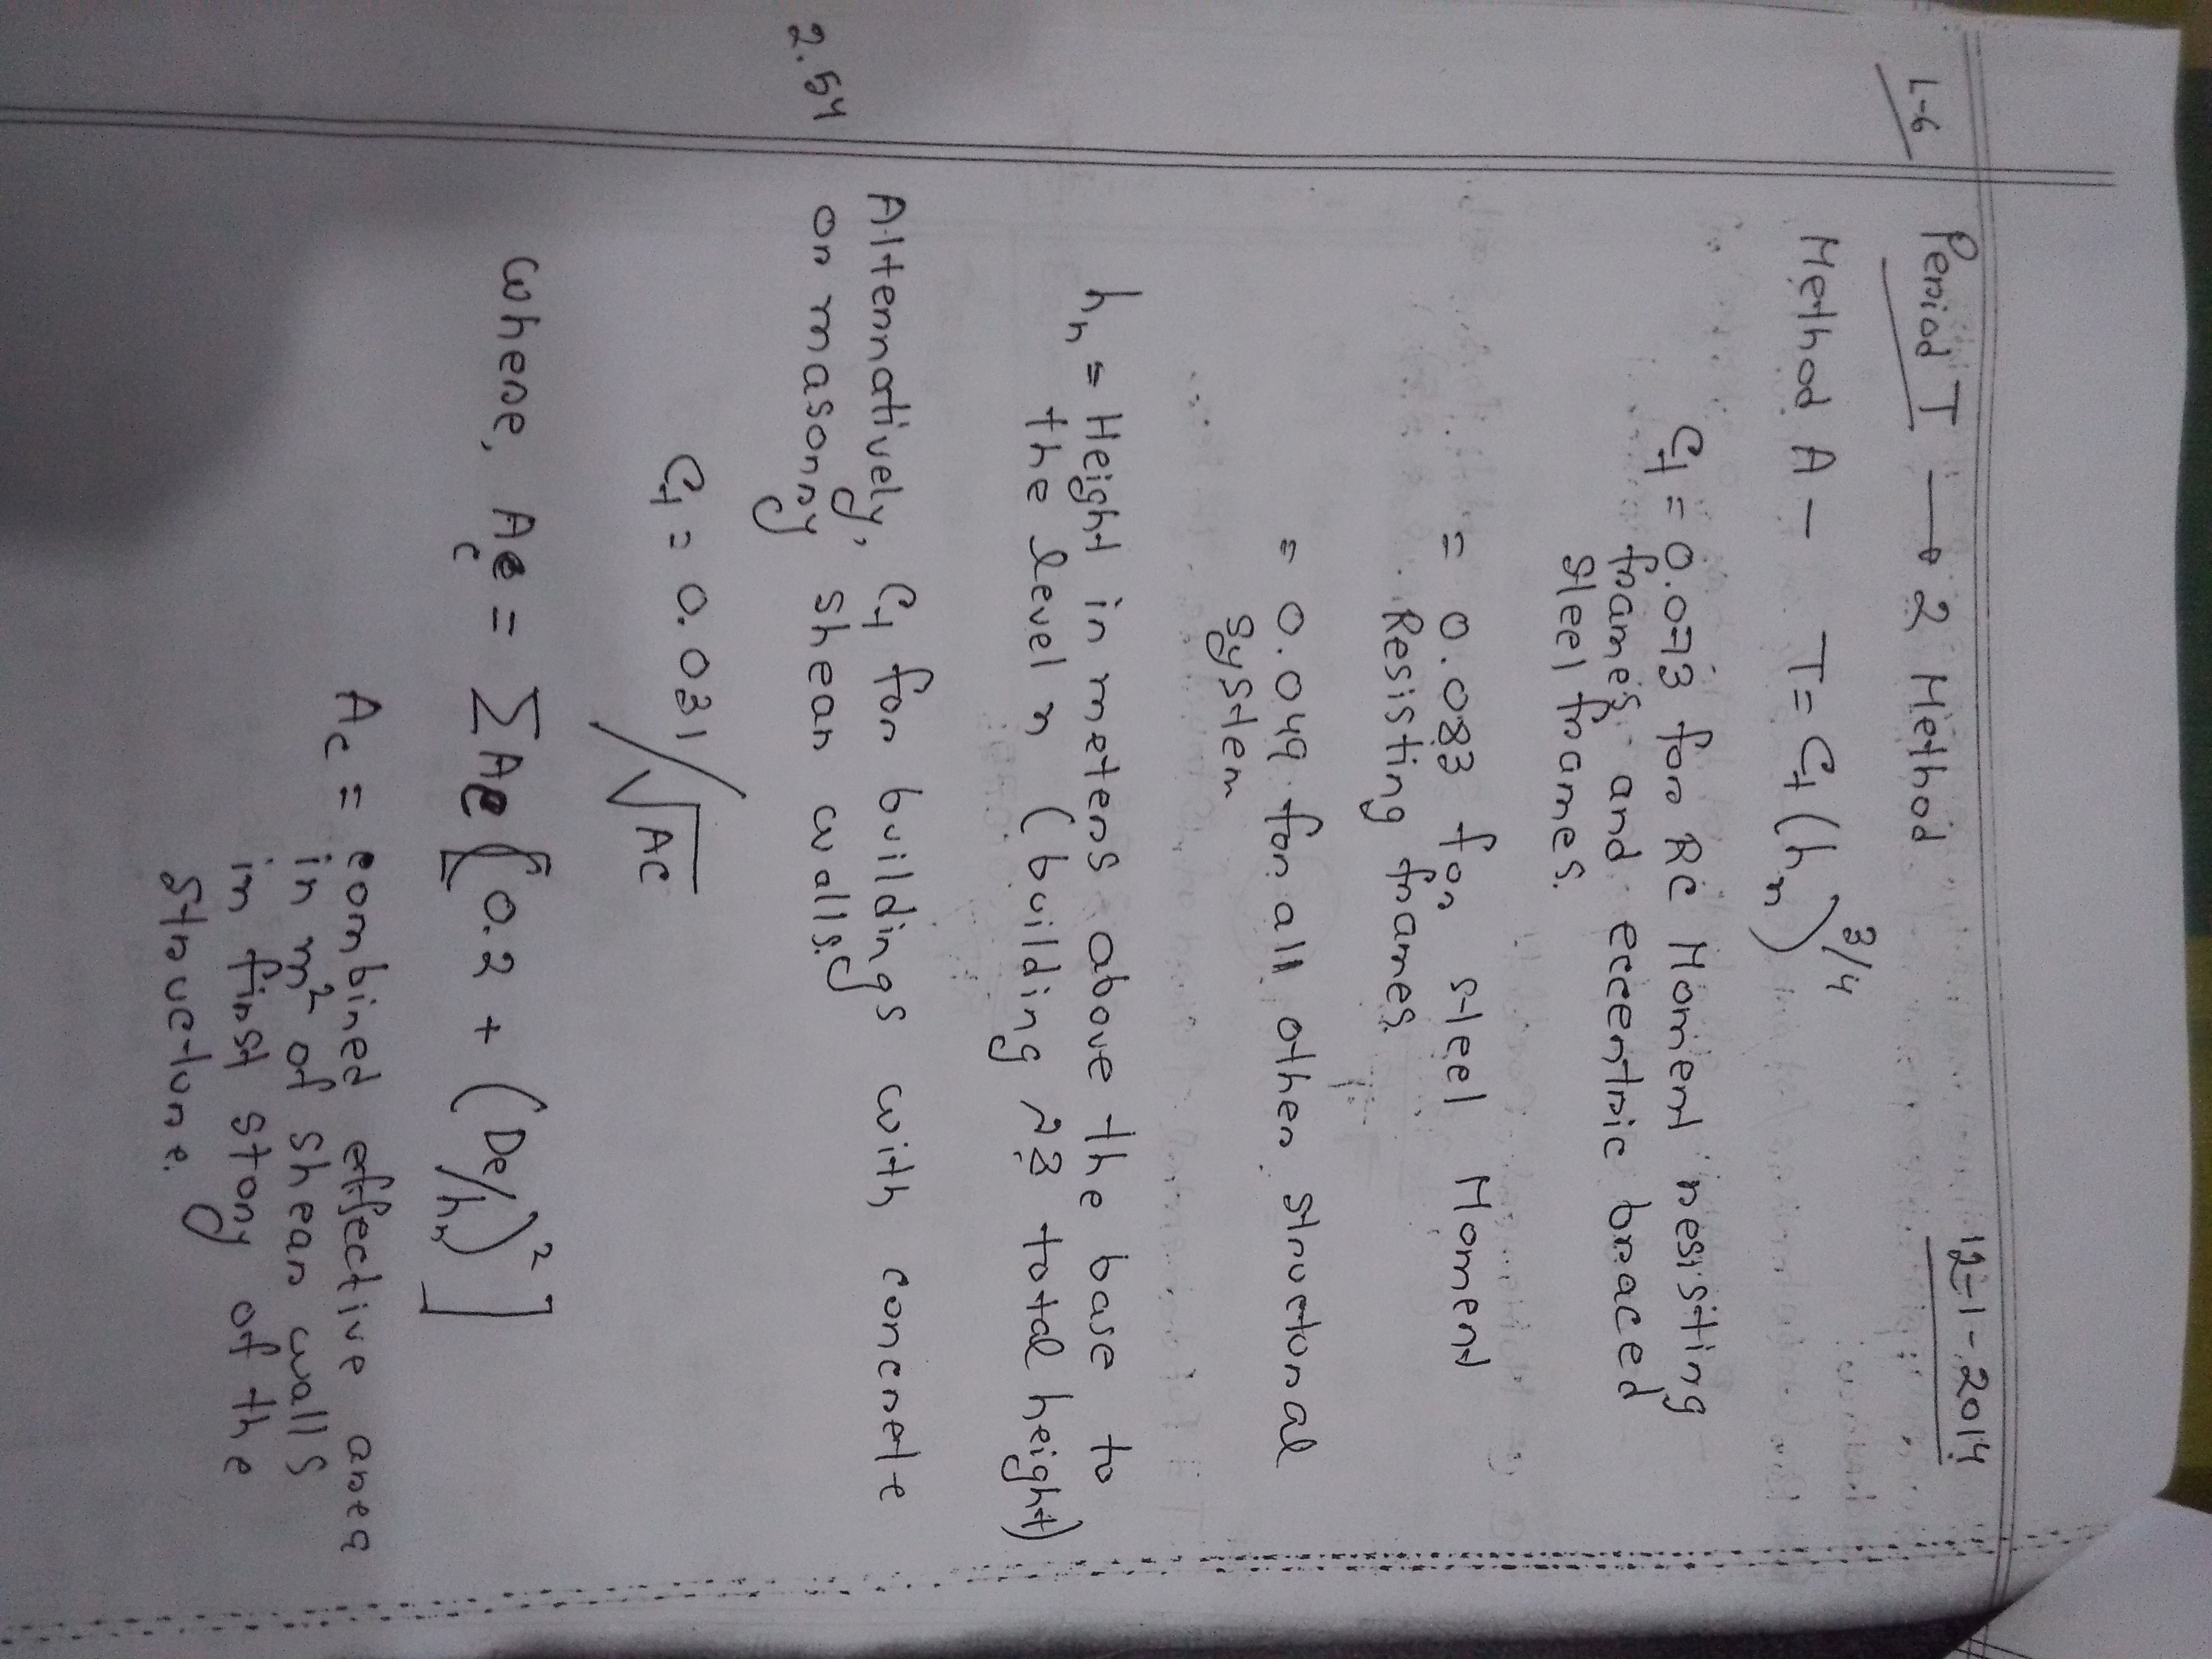 L-6
12-1-2014
Period T → 2 Method
Method A - T = Ct (hn)^3/4
Ct = 0.073 for RC Moment resisting
frames and eccentric braced
steel frames.
= 0.083 for steel Moment
Resisting frames.
= 0.049 for all other structural
System
hn = Height in meters above the base to
the level n (building এর total height)
Alternatively, Ct for buildings with concrete
2.54
or masonry shear walls.
Ct = 0.031/√Ac
where, Ac = ΣAe [0.2 + (De/hn)²]
Ac = combined effective area
in m² of shear walls
in first story of the
structure.